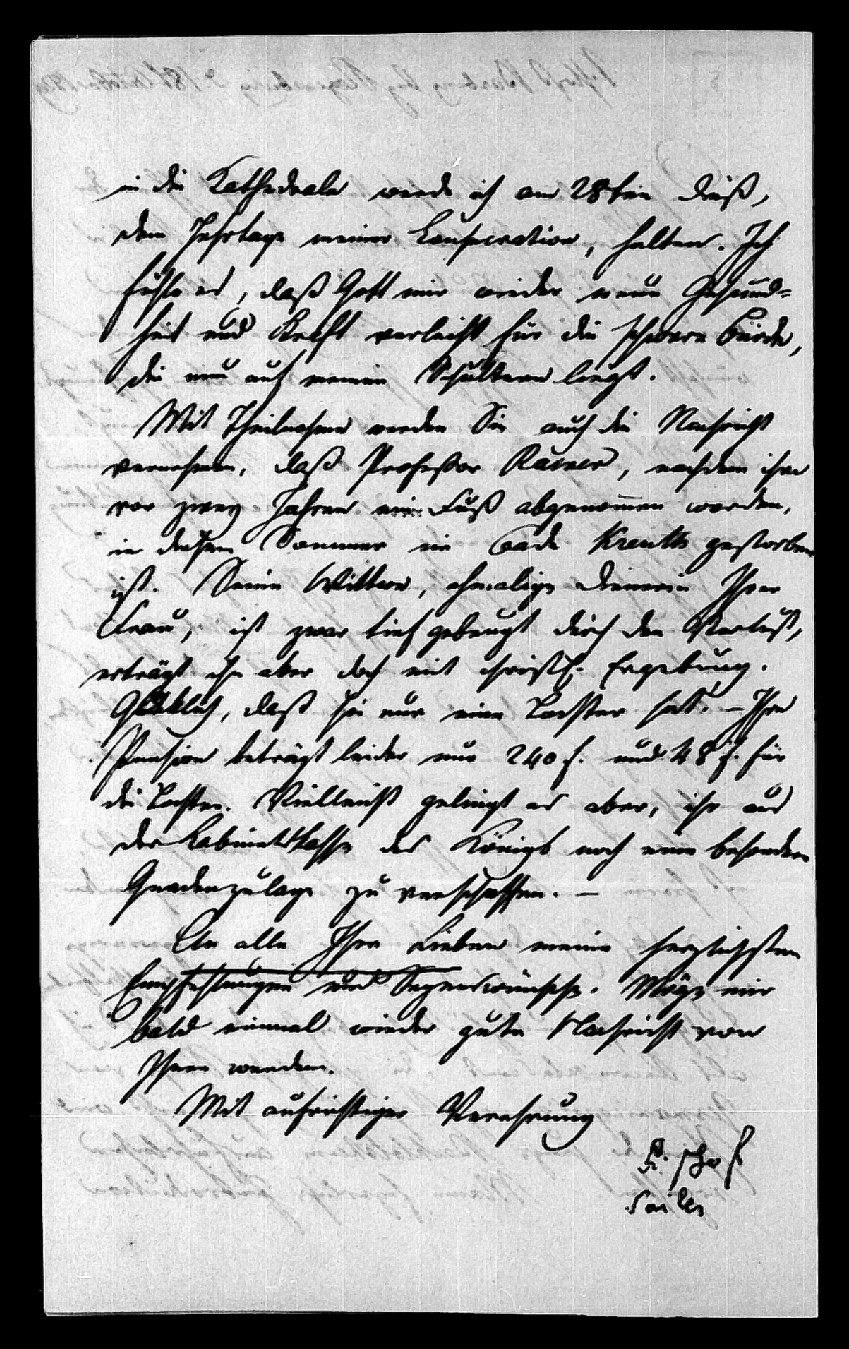 in die Kathedrale werde ich am 28ten dieß,
dem Jahrtage meiner Consecration, halten. Ich
fühle es, daß Gott mir wieder neue Gesund=
heit und Kraft verleiht für die schwere Bürde,
die nun auf meinen Schultern liegt.
Mit Theilnahme werden Sie auch die Nachricht
vernehmen, daß Professor Rainer, nachdem ihm
vor zwey Jahren ein Fuß abgenommen worden,
in diesem Sommer im Bade Kreuth gestorben
ist. Seine Wittwe, ehmalige Dienerin Ihrer
Frau, ist zwar tief gebeugt durch den Verlust,
erträgt ihn aber doch mit christl. Ergebung.
Glücklich, daß sie nur eine Tochter hat. – Ihre
Pension beträgt leider nur 240 f. und 48 f. für
die Tochter. Vielleicht gelingt es aber, ihr aus
der Kabinetskasse des Königs noch eine besondere
Gnadenzulage zu verschaffen. –
An alle Ihre Lieben meine herzlichsten
Empfehlungen und Segenswünsche. Möge mir
bald einmal wieder gute Nachricht von
Ihnen werden.
Mit aufrichtiger Verehrung
Bischof
Sailer